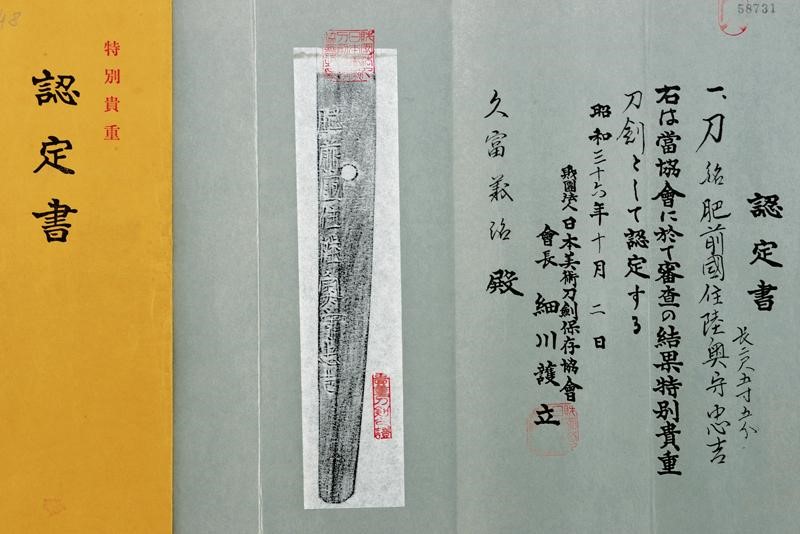 58731
認定書
一、刀 銘 肥前國住陸奥守忠吉
長二尺五寸五分
右は當協會に於て審査の結果特別貴重
刀劍として認定する
昭和三十六年十月二日
財團法人日本美術刀劍保存協會
會長 細川護立
久富義
殿
肥前國住陸奥守忠吉
特別貴重
認定書